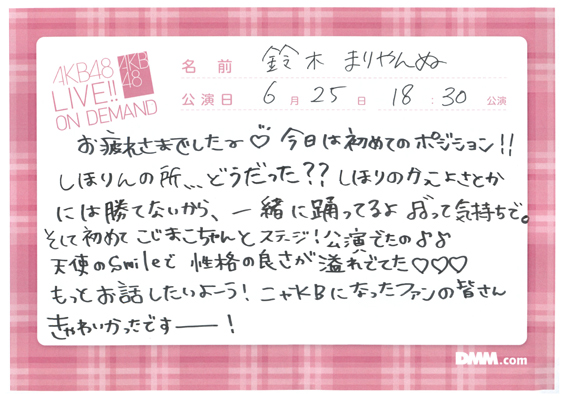 AKB48
LIVE!!
ON DEMAND
AKB
48
名前 鈴木 まりやんぬ
公演日 6月25日 18:30公演
お疲れさまでしたー♡ 今日は初めてのポジション!!
しほりんの所、、、どうだった?? しほりのかっこよさとか
には勝てないから、一緒に踊ってるよ って気持ちで。
そして初めて こじまこちゃんとステージ!公演でたの♪♪
天使のSmileと 性格の良さが溢れでてた♡♡♡
もっとお話したいよーう! ニャKBになったファンの皆さん
きゃわいかったですー!
DMM.com